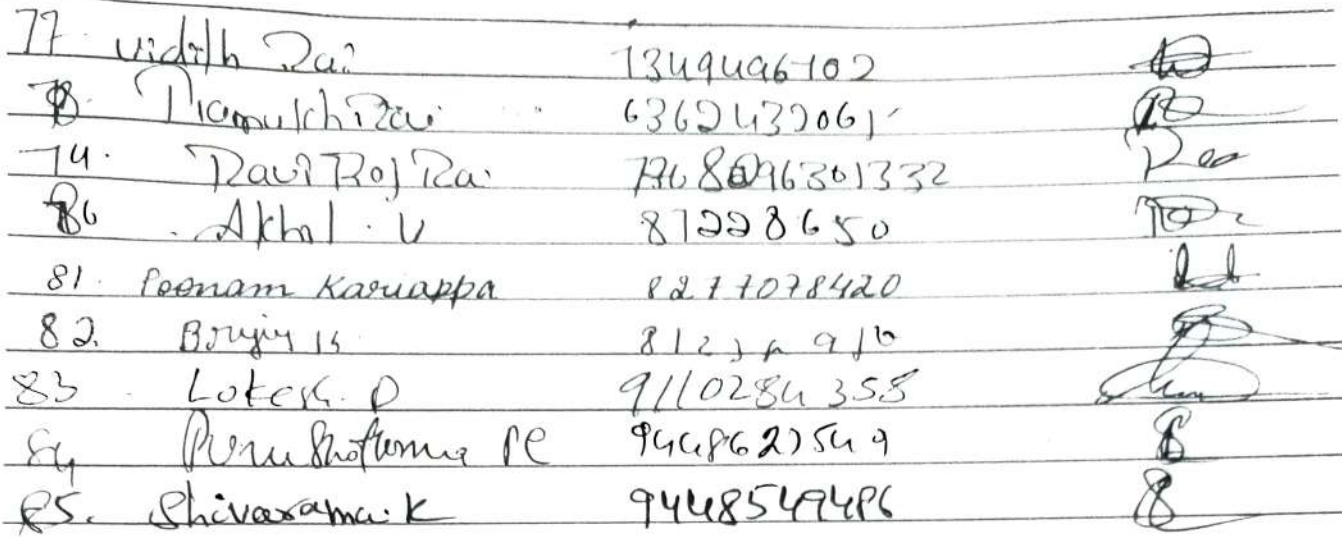 77. Vidith Rai 7349496102
78. Pramukh Rai 6362432061
74. Ravi Raj Rai 96301332
80 Akhil. V 81228650
81. Poonam Kariappa 8277078420
82. 
83 Lokesh. D 9110284358
84 Purushothama PC 9448627549
85. Shivarama. K 9448549486